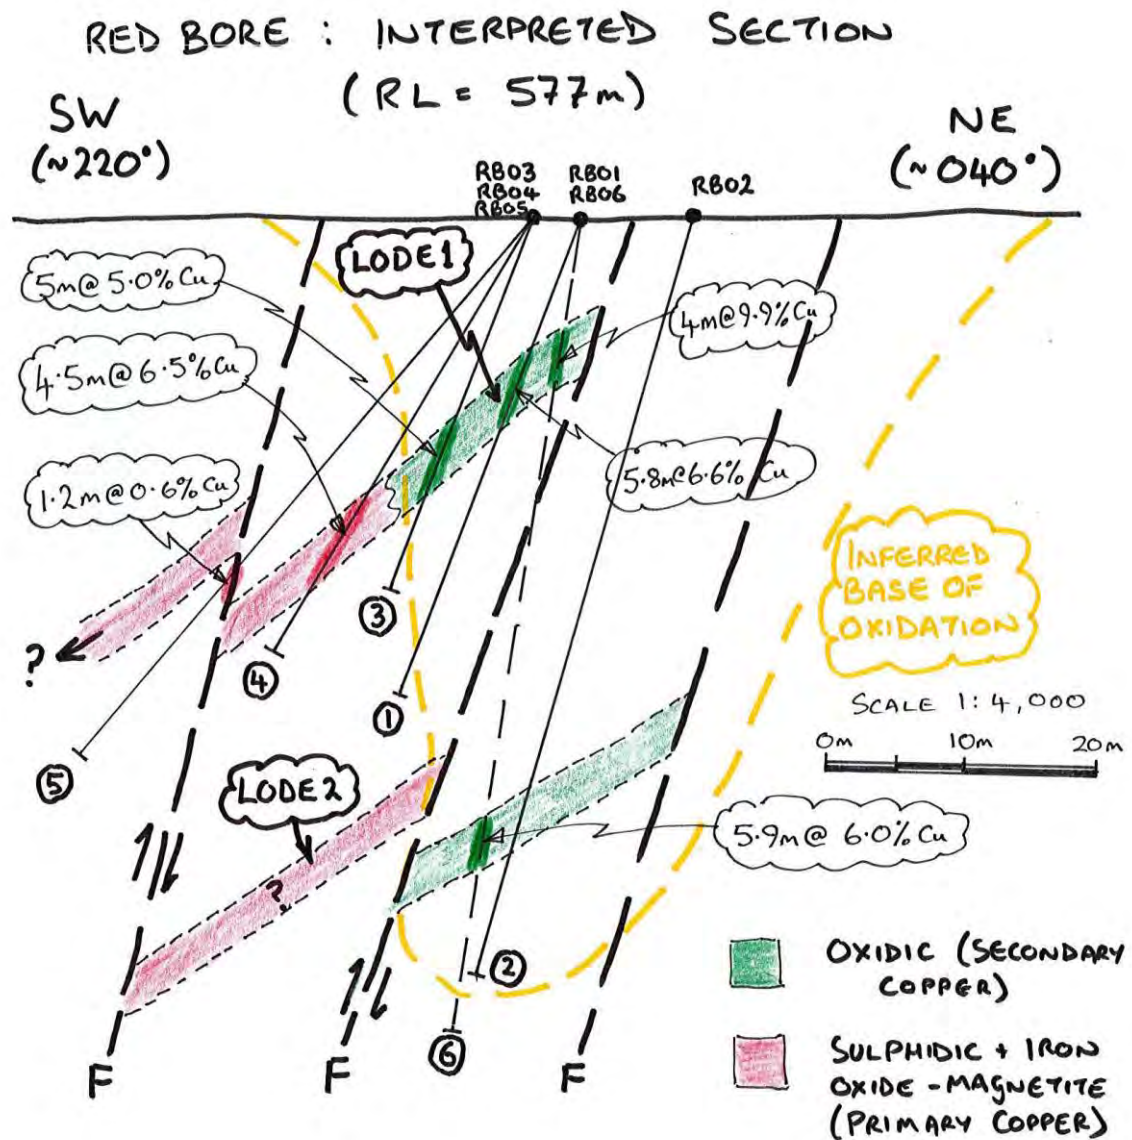 RED BORE : INTERPRETED SECTION
(RL = 577m)
SW
(~220°)
NE
(~040°)
RB03
RB04
RB05
RB01
RB06
RB02
LODE1
5m@5.0%Cu
4m@9.9%Cu
4.5m@6.5%Cu
1.2m@0.6%Cu
5.8m@6.6% Cu
INFERRED
BASE OF
OXIDATION
?
3
4
1
5
SCALE 1:4,000
0m 10m 20m
LODE2
5.9m@ 6.0%Cu
?
2
6
F
F
F
OXIDIC (SECONDARY
COPPER)
SULPHIDIC + IRON
OXIDE - MAGNETITE
(PRIMARY COPPER)